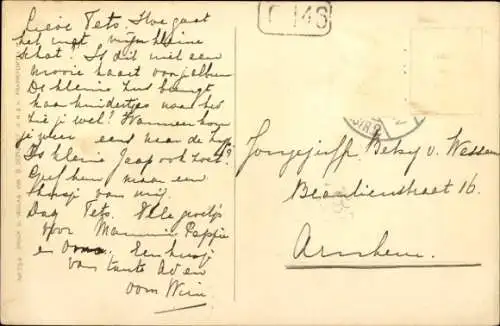 Lieve Tets. Hoe gaat
het met mijn kleine
schat? Is dit niet een
mooie kaart voor jullie
De kleine Lus brengt
haar kindertjes naar bed
zie je wel? Wanneer kom
je weer eens naar de
Is kleine Jaap ook zoet?
Geef hem maar een
kusje van mij.
Dag Tets. Vele groetjes
voor Mammie, Pappie
en Oma. Een kusje
van tante Ad en
oom Wim
C 146
Jongejuffr. Betsy v. Wessem
Beaulieustraat 16.
Arnhem.